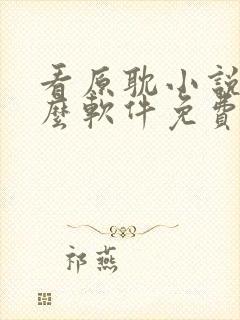 看原耽小說
麼軟件免費
祁燕